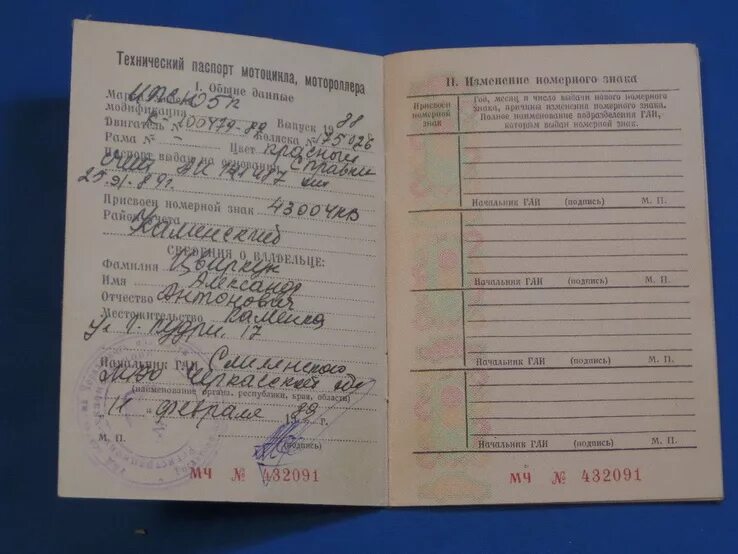 Технический паспорт мотоцикла, мотороллера
I. Общие данные
Марка
модификация
Двигатель № 100479-89 Выпуск 1988
Рама № - Коляска № 175026
Цвет красный
Паспорт выдан на основании справки
счет
25.
Присвоен номерной знак 4300ЧКВ
Район учета
Каменский
СВЕДЕНИЯ О ВЛАДЕЛЬЦЕ:
Фамилия
Имя Александр
Отчество Антонович
Местожительство Каменка
17
Начальник ГАИ Смелянского
МРЭО Черкасской обл
(наименование органа, республики, края, области)
" 11 " февраля 1989 г.
М. П. (подпись)
МЧ № 432091
II. Изменение номерного знака
Присвоен номерной знак
Год, месяц и число выдачи нового номерного знака, причина изменения номерного знака. Полное наименование подразделения ГАИ, которым выдан номерной знак.
Начальник ГАИ (подпись) М. П.
Начальник ГАИ (подпись) М. П.
Начальник ГАИ (подпись) М. П.
Начальник ГАИ (подпись) М. П.
МЧ № 432091